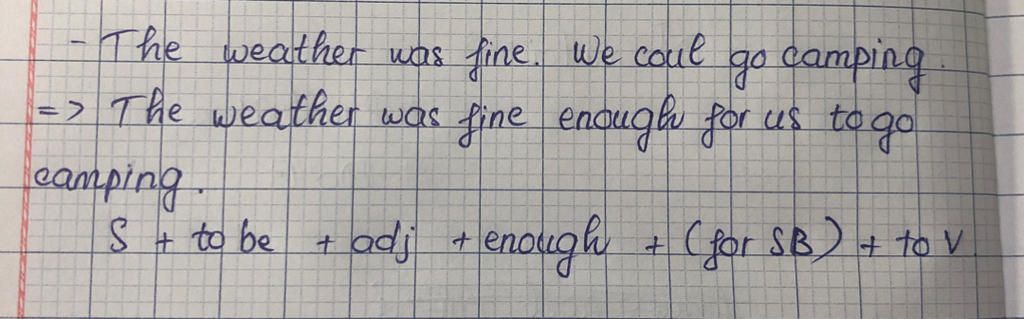 - The weather was fine. We coul go camping.
=> The weather was fine enough for us to go
camping.
S + to be + adj + enough + (for SB) + to V